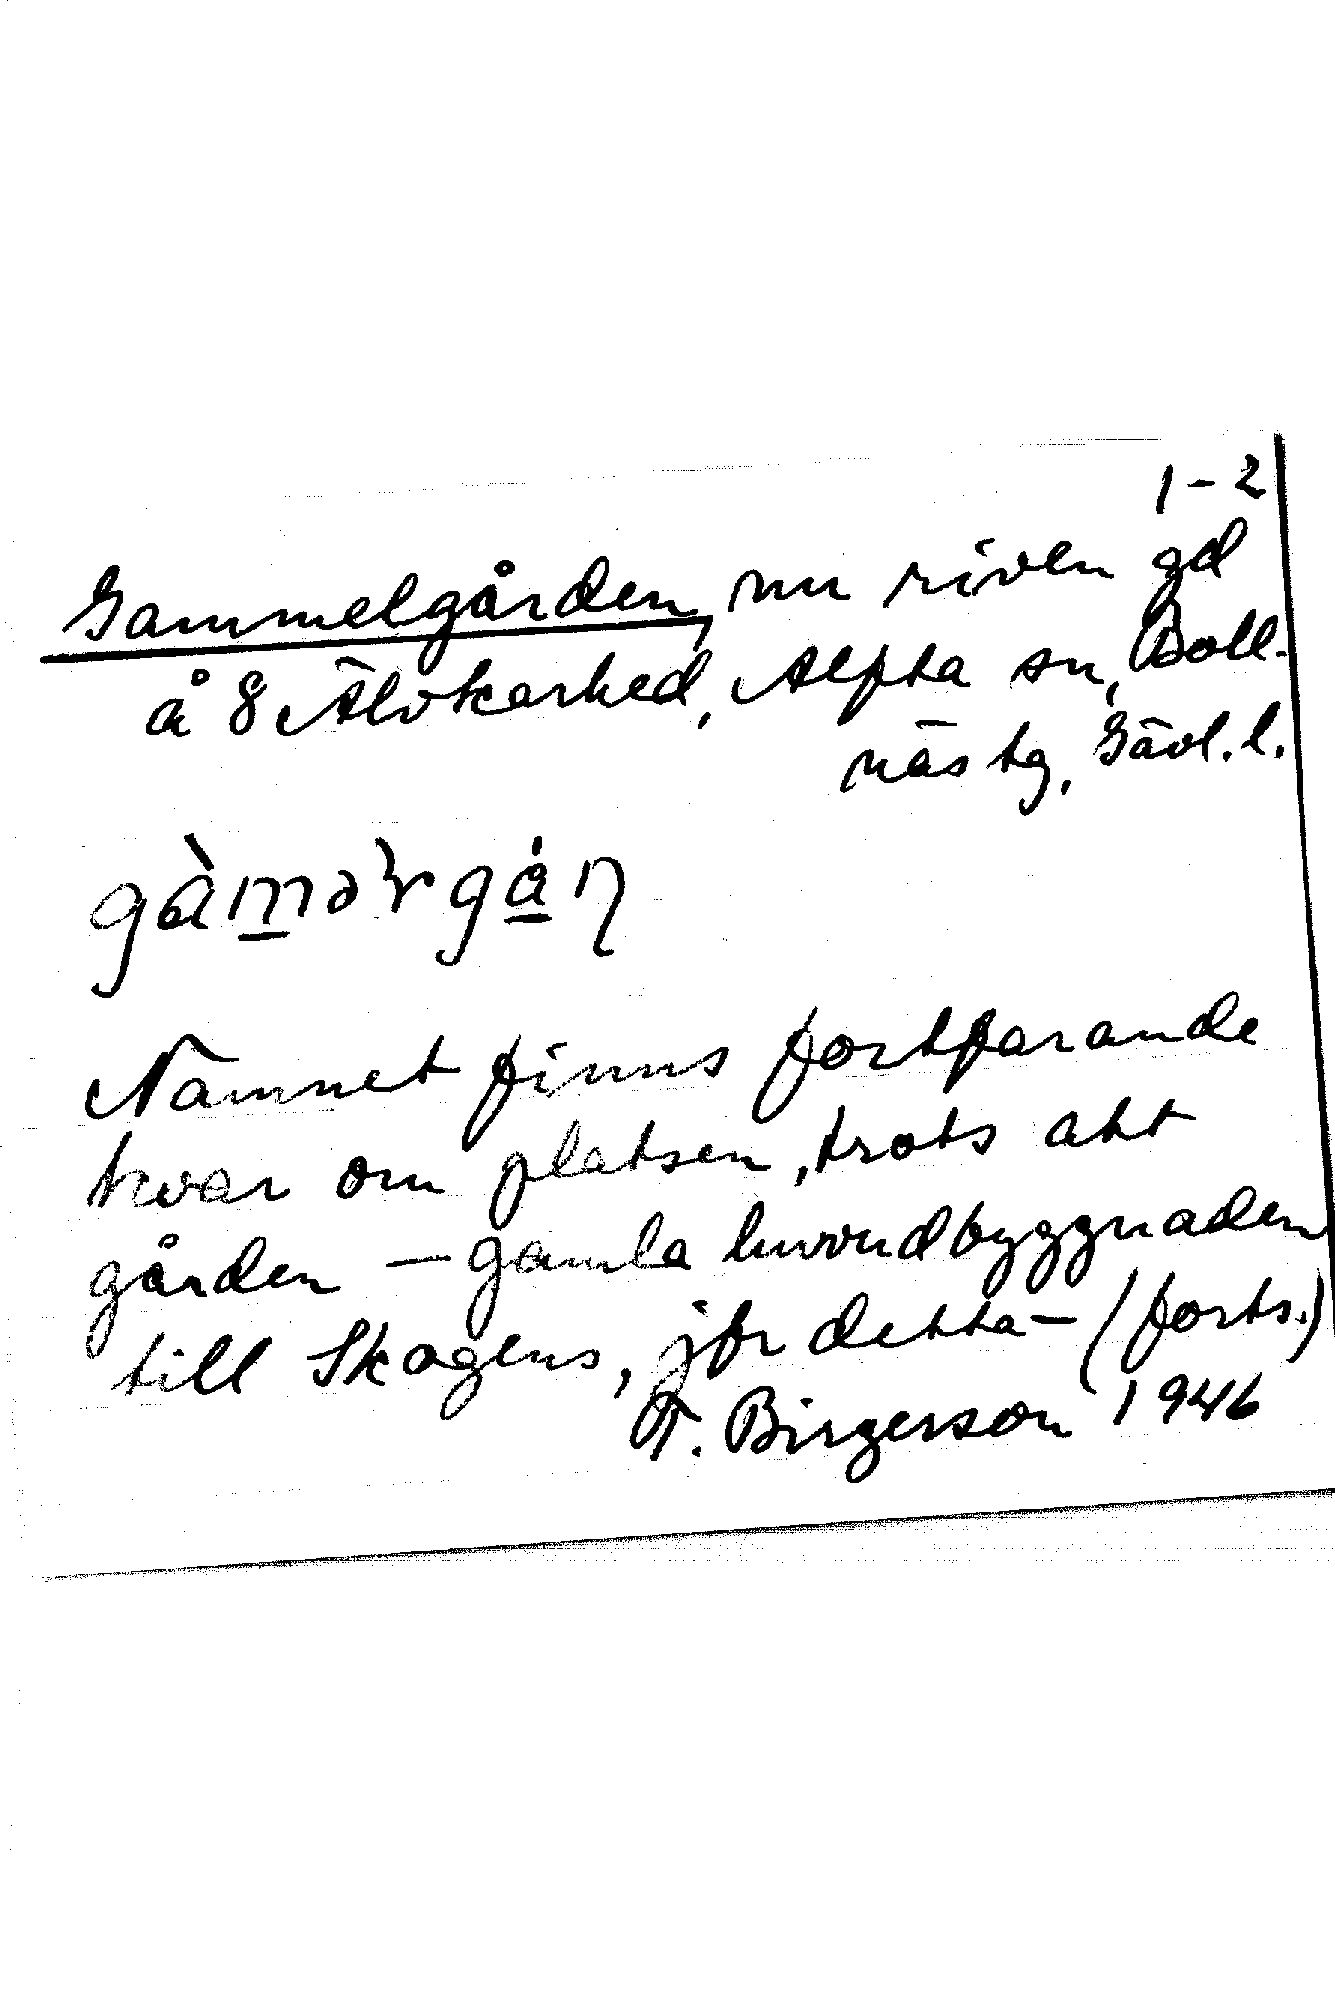 1-2
Gammelgården, nu riven gd
å 8 Älvkarhed, Alfta sn, Boll-
näs tg, Gävl. l.
Namnet finns fortfarande
kvar om platsen, trots att
gården — gamla huvudbyggnaden
till Skogens, jfr detta — (forts.)
F. Birgerson 1946